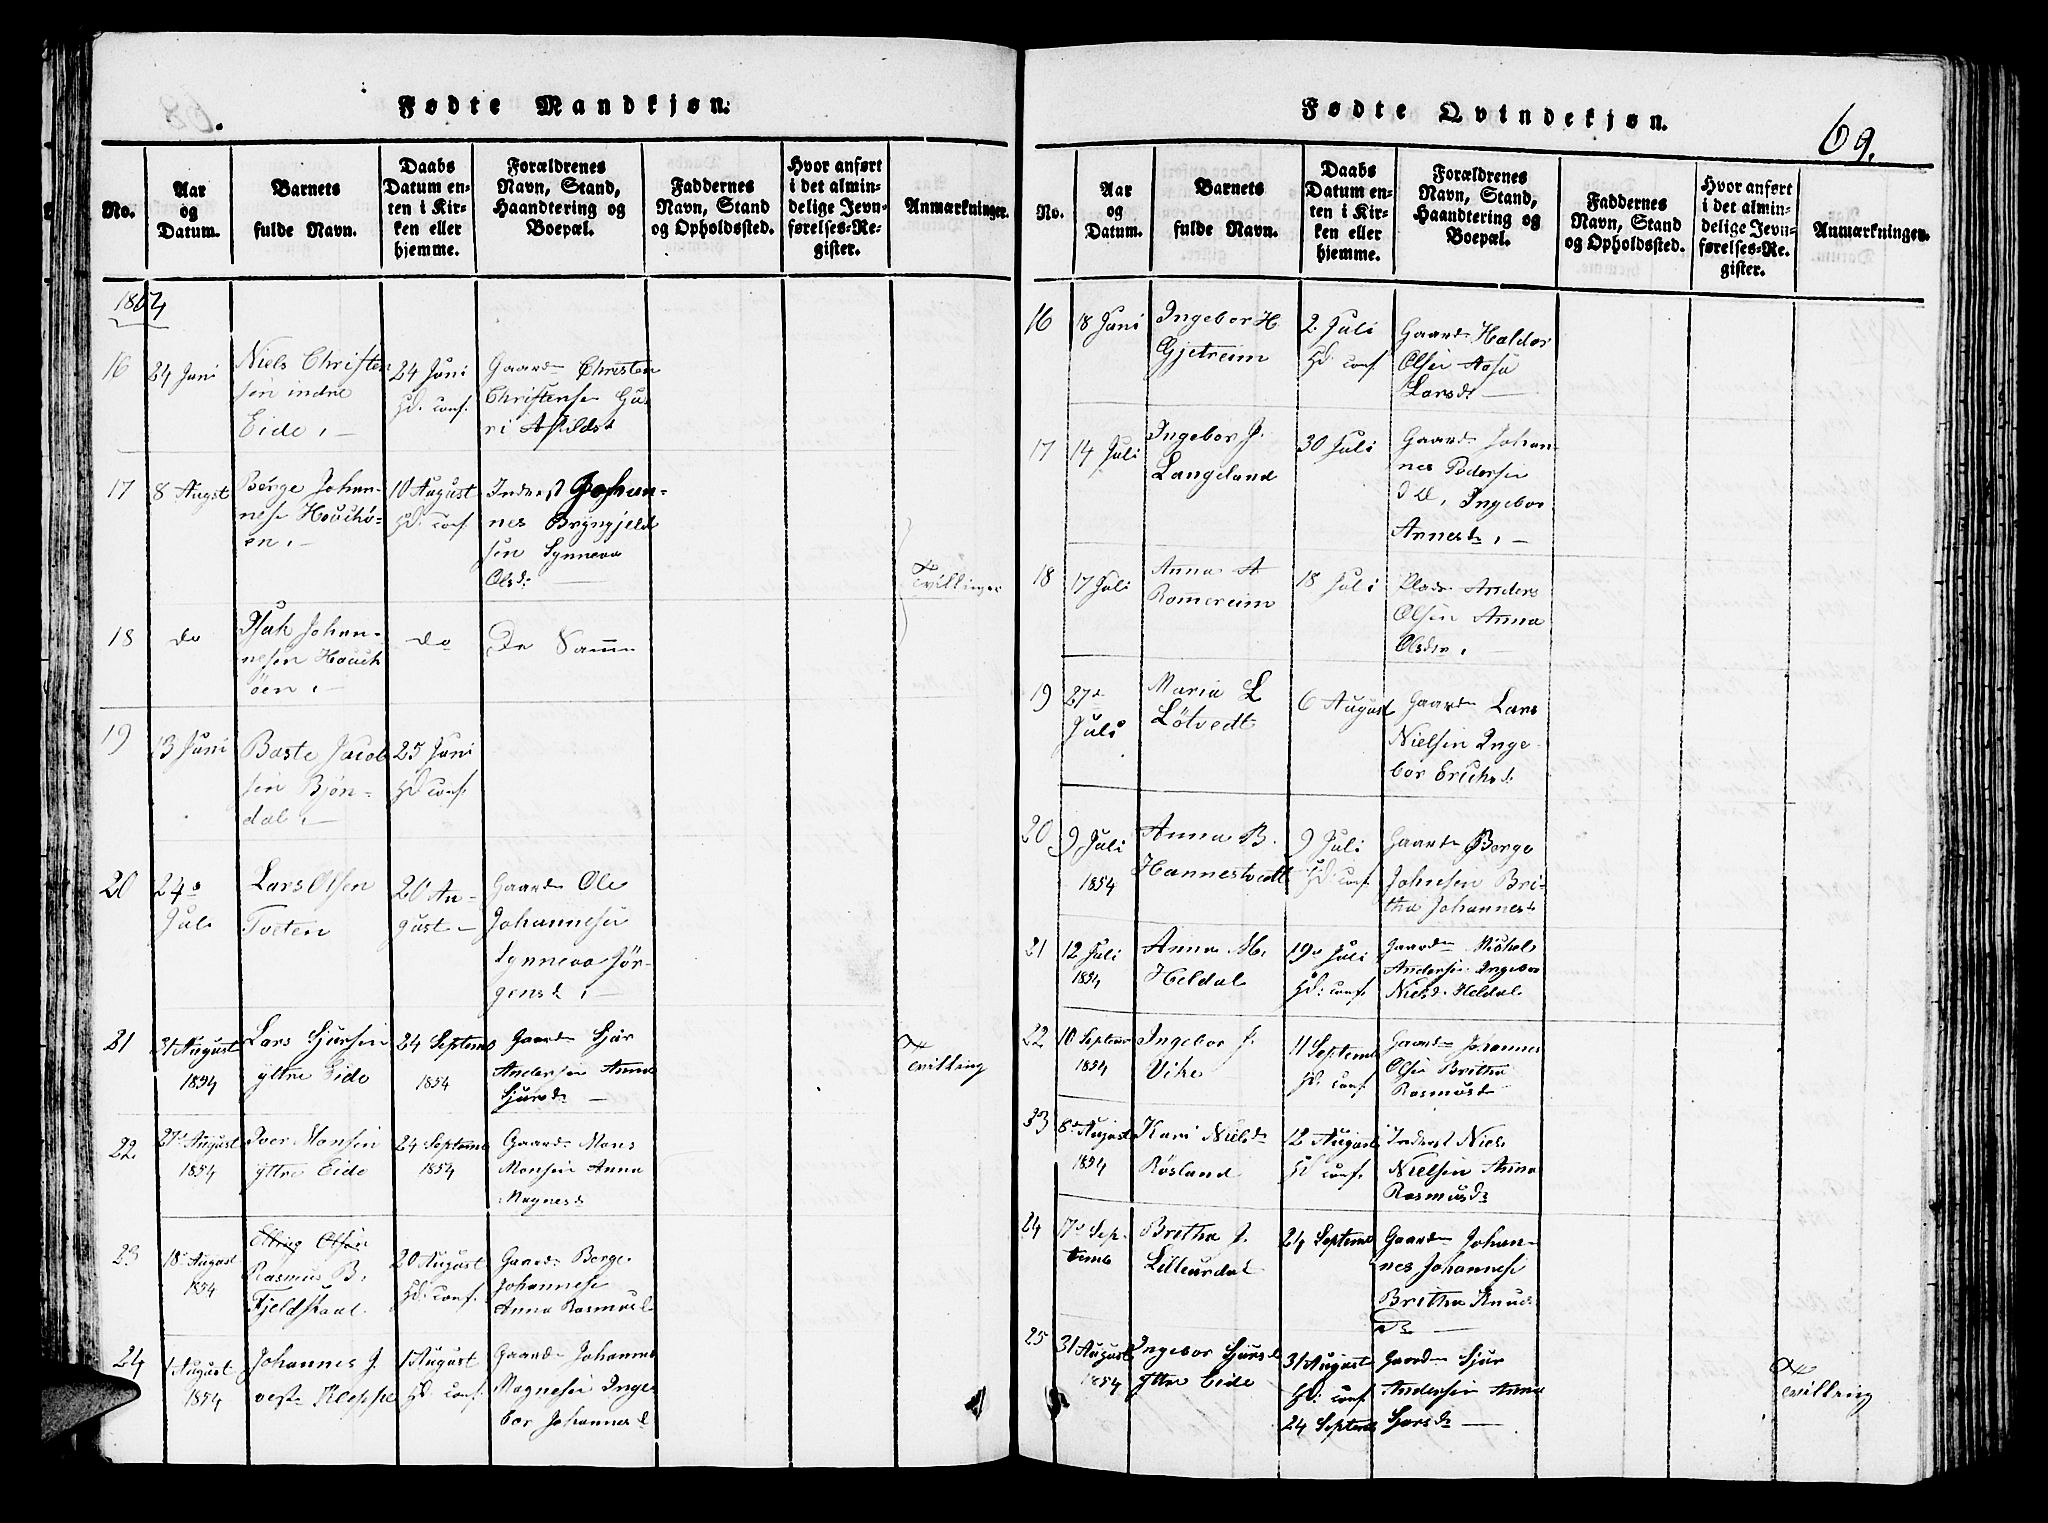 Fødte Mandkjøn.
No.
Aar
og
Datum.
Barnets
fulde Navn.
Daabs
Datum en-
ten i Kir-
ken eller
hjemme.
Forældrenes
Navn, Stand,
Haandtering og
Boepæl.
Faddernes
Navn, Stand
og Opholdssted.
Hvor anført
i det almin-
delige Jevn-
førelses-Re-
gister.
Anmærkninger.
1854
16
24 Juni
Niels Christen
sen indre
Eide. —
24 Juni
Hd. conf.
Gaardm Christen
Christensen Gu-
ri
17
8 August
Børge Johan-
nesen
10 August
Hd. conf.
Inderst Johan-
nes Bryngjeld
sen Synneva
Olsd. —
Tvillinger
18
do
Isak Johan-
nesen
do
De Samme
19
13 Juni
Baste Jacob
sen Bjørn-
dal. —
25 Juni
Hd conf.
20
24de
Juli
Lars Olsen
Tveten
20 Au-
gust —
Gaardm Ole
Johannesen
Synneva Jør-
gensd. —
21
31 August
1854
Lars Sjursen
yttre Eide
24 Septemb
1854
Gaardm Sjur
Andersen Anna
Sjursd. —
Tvilling
22.
27de August
1854
Iver Monsen
yttre Eide
24 Septemb
1854
Gaardm Mons
Monsen Anna
Magnesd.
23
18 August
1854
Elling Olsen
Rasmus B.
Fjeldstaal.
20 August
Hd. conf.
Gaardm Børge
Johannesen
Anna Rasmusd
24
1 August
1854
Johannes J.
vestre Kleppe
1 August
Hd conf.
Gaardm Johannes
Magnesen Inge-
bor Johannesd
Fødte Qvindekjøn.
69.
No.
Aar
og
Datum.
Barnets
fulde Navn.
Daabs
Datum en-
ten i Kir-
ken eller
hjemme.
Forældrenes
Navn, Stand,
Haandtering og
Boepæl.
Faddernes
Navn, Stand
og Opholdssted.
Hvor anført
i det almin-
delige Jevn-
førelses-Re-
gister.
Anmærkninger.
16
18 Juni
Ingebor H
Gjetreim
2. Juli
Hd. conf.
Gaardm Haldor
Olsen Aasa
Larsd. —
17
14 Juli
Ingebor J.
Langeland
30 Juli
Gaardm Johan-
nes Pedersen
Ingebor
Arnesd. —
18
17 Juli
Anna A
Romereim
18 Juli
Anders
Olsen Anna
Olsdr.
19
27de
Juli
Maria L
Løtvedt
6 August
Gaardm Lars
Nielsen Inge-
bor Erichsd.
20
9 Juli
1854
Anna B.
Hannestvedt
9 Juli
Hd. conf.
Gaardm Børge
Johnsen Bri-
tha Johannesd.
21
12 Juli
1854
Anna M.
Heldal
19de Juli
Hd. conf.
Gaardm Michel
Andersen Ingebor
Nielsd. Heldal.
22
10 Septemb
1854
Ingebor J.
Vike
11 Septemb
Hd. conf.
Gaardm Johannes
Olsen Britha
Rasmusd
23
8de August
1854
Kari Nielsd
Røsland
12 August
Hd conf.
Inderst Niels
Nielsen Anna
Rasmusd
24
17de Sep-
temb
Britha J.
Lilleurdal
24 Septemb
Gaardm Johan-
nes Johannesen
Britha Knuds
Dr. —
25
31 August
1854
Ingebor Sjursd
yttre Eide
31 August
Hd. conf.
24 Septemb
Gaardm Sjur
Andersen Anna
Sjursd. —
Tvilling